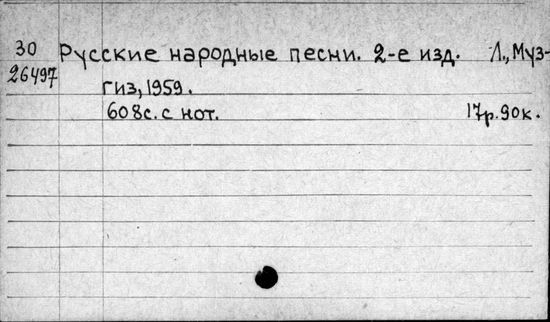 30 Русские народные песни. 2-е изд. Л., Муз-
26497
гиз, 1959.
608с. с нот. 17р. 90к.